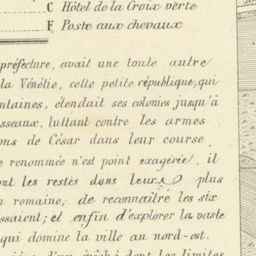 C Hôtel de la Croix verte
F Poste aux chevaux
préfecture, avait une toute autre
la Vénétie, cette petite république, qui
ntaines, étendait ses colonies jusqu'à
sseaux, luttant contre les armes
ons de César dans leur course
e renommée n'est point exagérée, il
ont les restes dans leur plus
n romaine, de reconnaître les six
ssaient; et enfin d'explorer la vaste
qui domine la ville au nord-est.
d'un évêché dont les limites